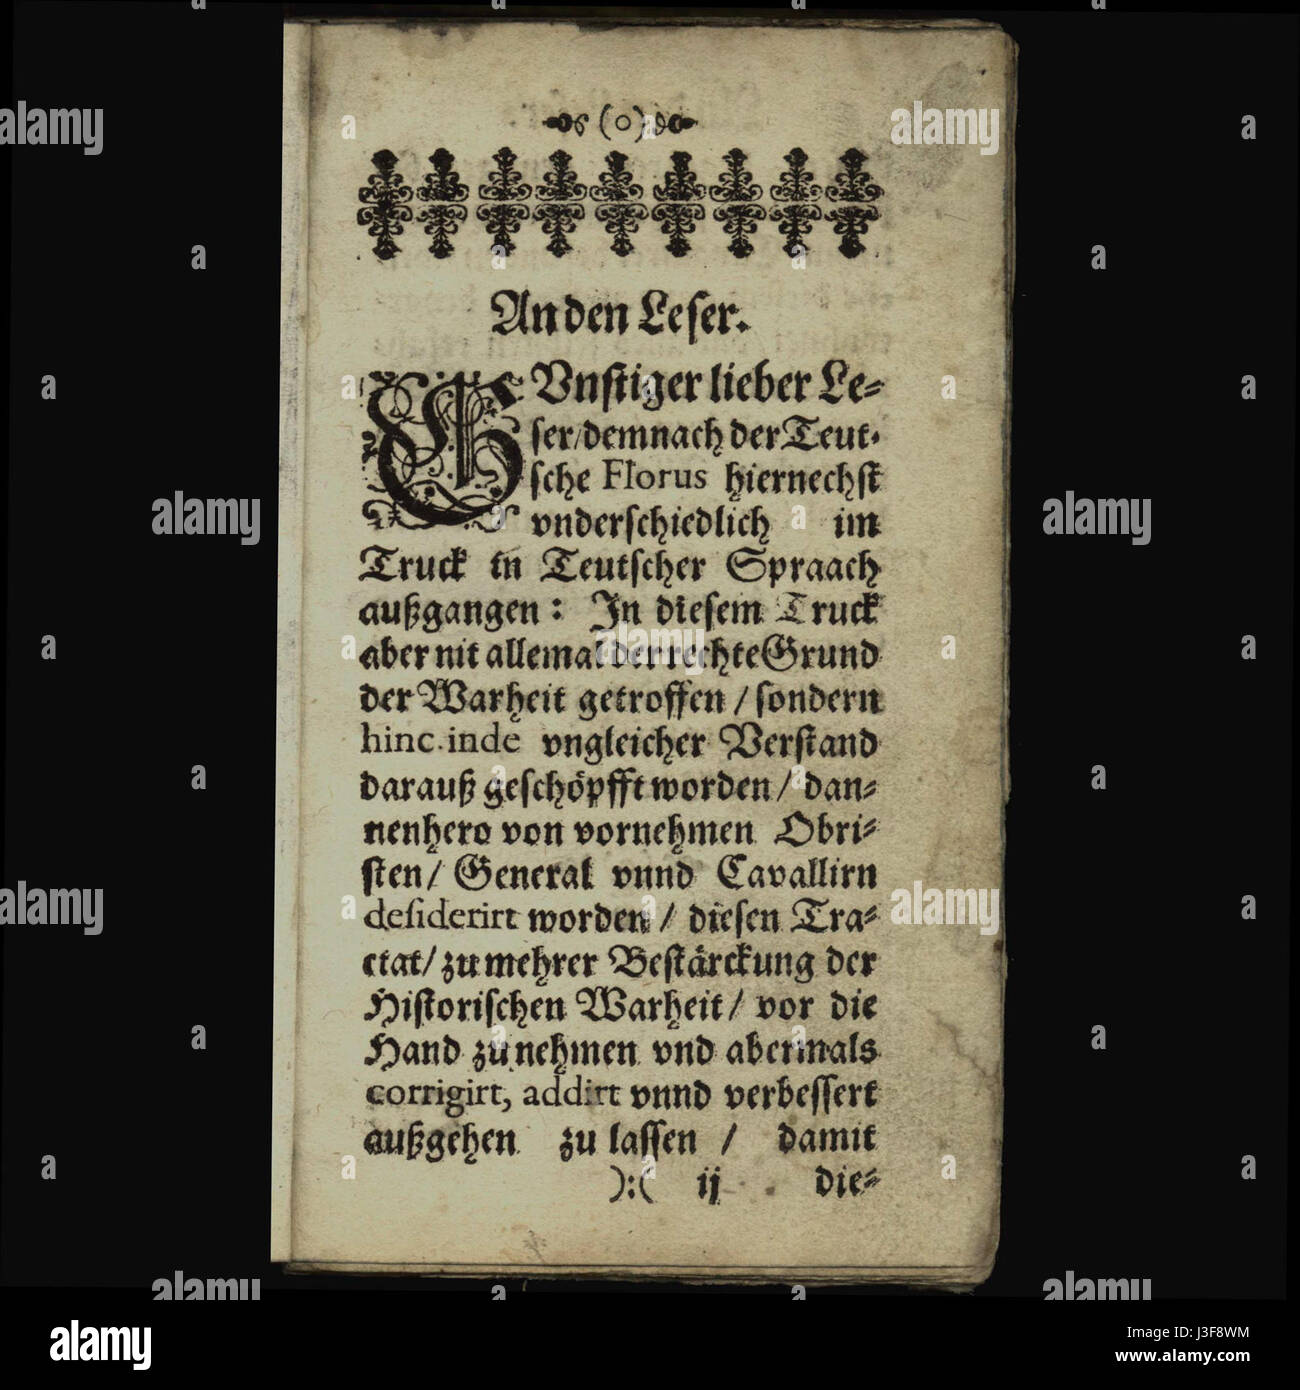 (o)
An den Leser.
GUnſtiger lieber Le-
ſer / demnach der Teut-
ſche Florus hiernechſt
vnderſchiedlich im
Truck in Teutſcher Spraach
außgangen: In dieſem Truck
aber nit allemal der rechte Grund
der Warheit getroffen / ſondern
hinc inde vngleicher Verſtand
darauß geſchöpfft worden / dan-
nenhero von vornehmen Obri-
ſten / General vnnd Cavallirn
deſiderirt worden / dieſen Tra-
ctat / zu mehrer Beſtärckung der
Hiſtoriſchen Warheit / vor die
Hand zu nehmen vnd abermals
corrigirt, addirt vnnd verbeſſert
außgehen zu laſſen / damit
):( ij die-
a
alamy
alamy
Image ID: J3F8WM
www.alamy.com